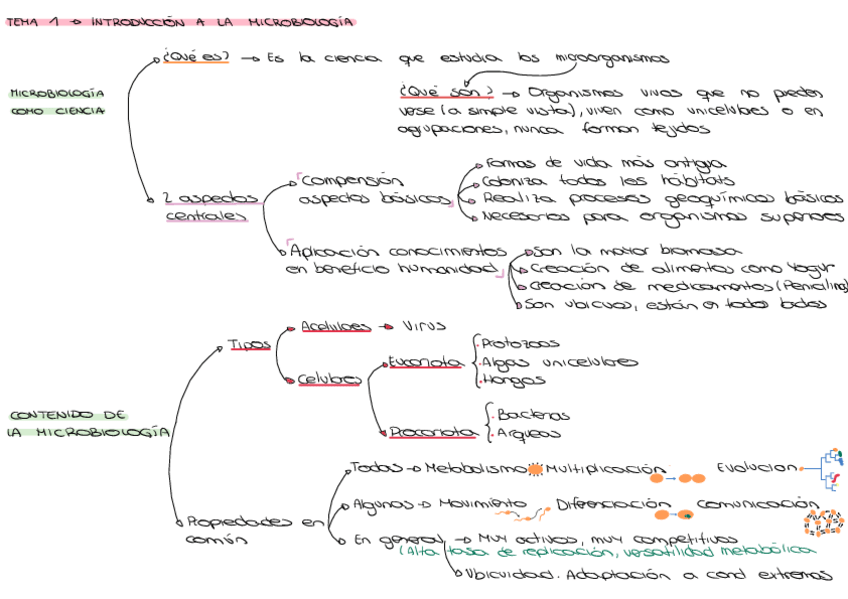 TEMA 1 → INTRODUCCIÓN A LA MICROBIOLOGÍA
MICROBIOLOGÍA
COMO CIENCIA
¿Qué es? → Es la ciencia que estudia los microorganismos
¿Qué son? → Organismos vivos que no pueden
verse (a simple vista), viven como unicelulares o en
agrupaciones, nunca forman tejidos
2 aspectos
centrales
Compensión
aspectos básicos
Formas de vida más antigua
Coloniza todos les hábitats
Realiza procesos geoquímicos básicos
Necesarios para organismos superiores
Aplicación conocimientos
en beneficio humanidad
Son la mayor biomasa
Creación de alimentos como yogur
Creación de medicamentos (Penicilina)
Son ubicuos, están en todos lados
CONTENIDO DE
LA MICROBIOLOGÍA
Tipos
Acelulares → Virus
Celulares
Eucariota
Protozoos
Algas unicelulares
Hongos
Procariota
Bacterias
Arqueas
Propiedades en
común
Todas → Metabolismo Multiplicación Evolucion
Algunos → Movimiento Diferenciación Comunicación
En general → Muy activos, muy competitivos
(Alta tasa de replicación, versatilidad metabólica
Ubicuidad. Adaptación a cond extremas